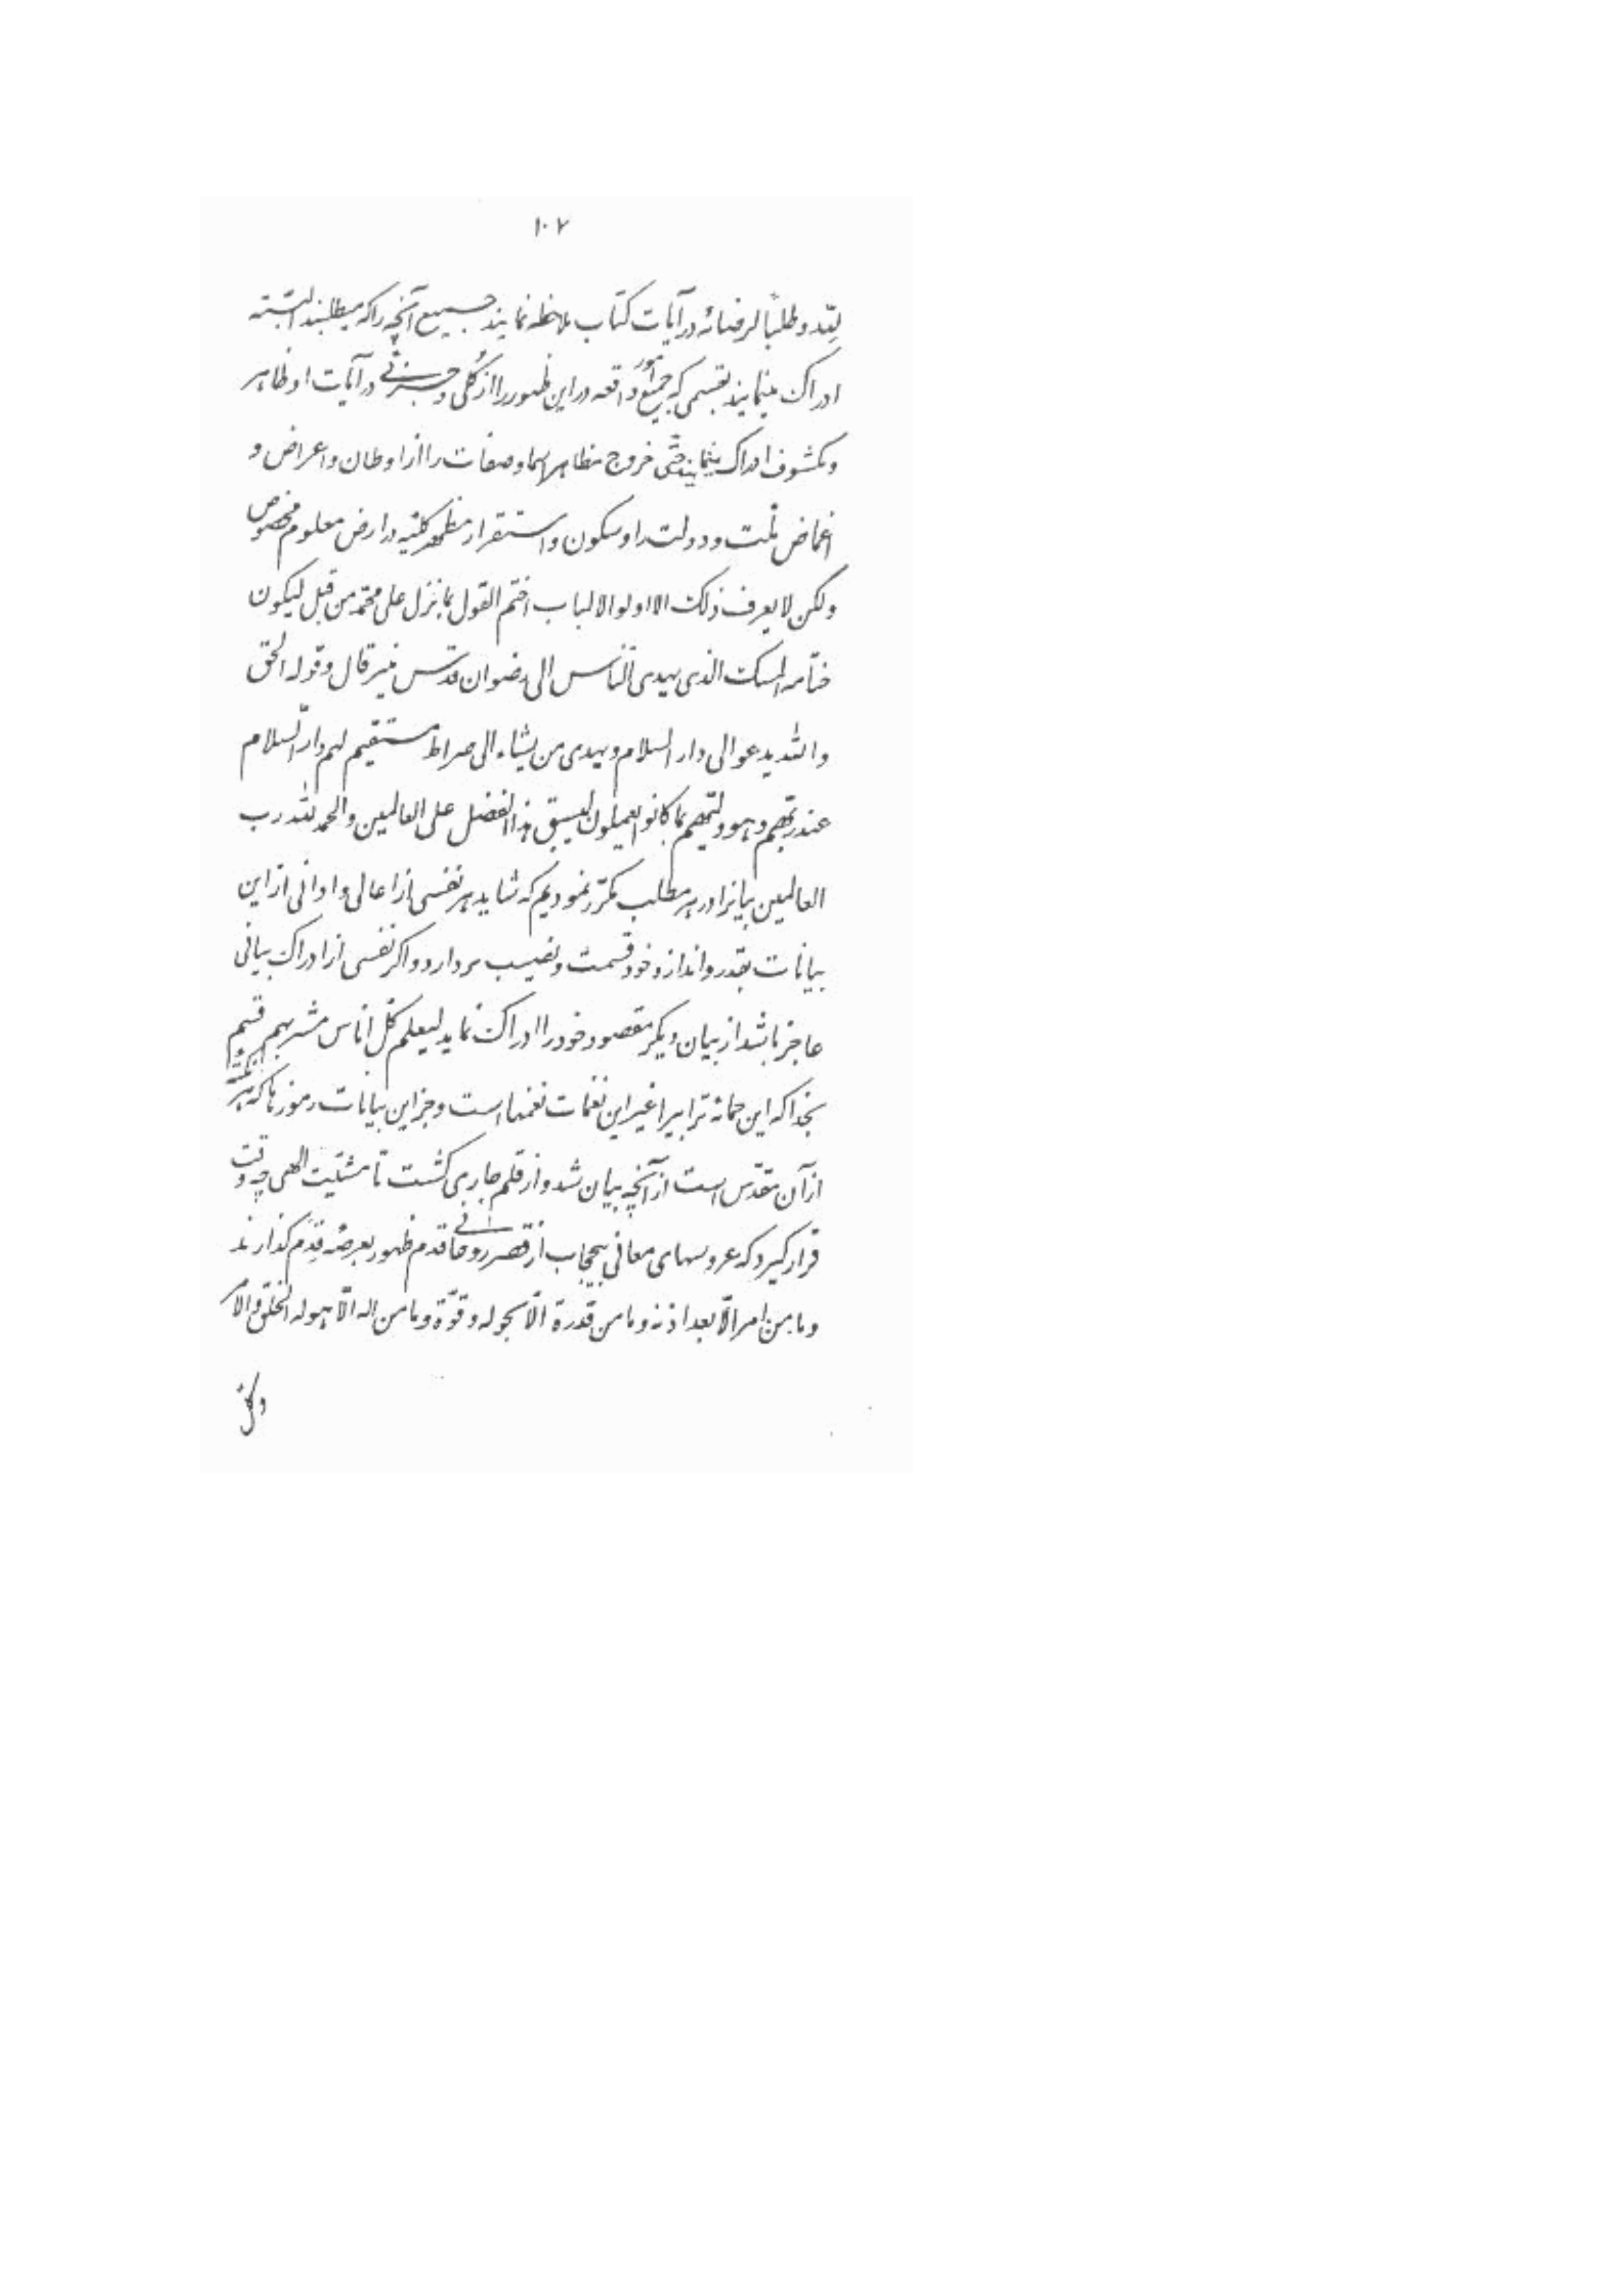 ١٠٧
للّه و طلباً لرضائه در آیات کتاب ملاحظه نمایند جمیع آنچه را که میطلبند البتّه
ادراک مینمایند بقسمی که جمیع امور واقعه در این ظهور را از کلّی و جزئی در آیات او ظاهر
و مکشوف ادراک مینمایند حتّی خروج مظاهر اسما و صفات را از اوطان و اعراض و
اغماض ملّت و دولت را و سکون و استقرار مظهر کلّیّه در ارض معلوم مخصوص
ولکن لا یعرف ذلک الا اولوا الالباب اختم القول بما نزل علی محمّد من قبل لیکون
ختامه المسک الذی یهدی النّاس الی رضوان قدس منیر قال و قوله الحق
و اللّه یدعو الی دار السلام و یهدی من یشاء الی صراط مستقیم لهم دار السّلام
عند ربّهم و هو ولیّهم بما کانوا یعملون لیسبق هذا الفضل علی العالمین و الحمد للّه رب
العالمین بیانرا در هر مطلب مکرّر نمودیم که شاید هر نفسی از اعالی و ادانی از این
بیانات بقدر و اندازه خود قسمت و نصیب بردارد و اگر نفسی از ادراک بیانی
عاجز باشد از بیان دیگر مقصود خود را ادراک نماید لیعلم کلّ اناس مشربهم قسم
بخدا که این حمامه ترابیرا غیر این نغمات نغمها است و جز این بیانات رموزها که هر نکته
از آن مقدّس است از آنچه بیان شد و از قلم جاری گشت تا مشیّت الهی چه وقت
قرار گیرد که عروسهای معانی بیحجاب از قصر روحانی قدم ظهور بعرصه قِدَم گذارند
و ما من امر الّا بعد اذنه و ما من قدرة الّا بحوله و قوّة و ما من اله الّا هو له الخلق و الأمر
و کلّ